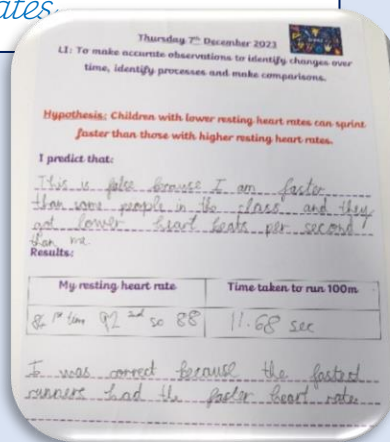 ates
Thursday 7th December 2023
LI: To make accurate observations to identify changes over
time, identify processes and make comparisons.
Hypothesis: Children with lower resting heart rates can sprint
faster than those with higher resting heart rates.
I predict that:
This is false because I am faster
than some people in the class and they
got lower heart beats per second
than me
Results:
My resting heart rate
Time taken to run 100m
1st time 92 2nd so 88
11.68 sec
I was correct because the fastest
runners had the faster heart rate